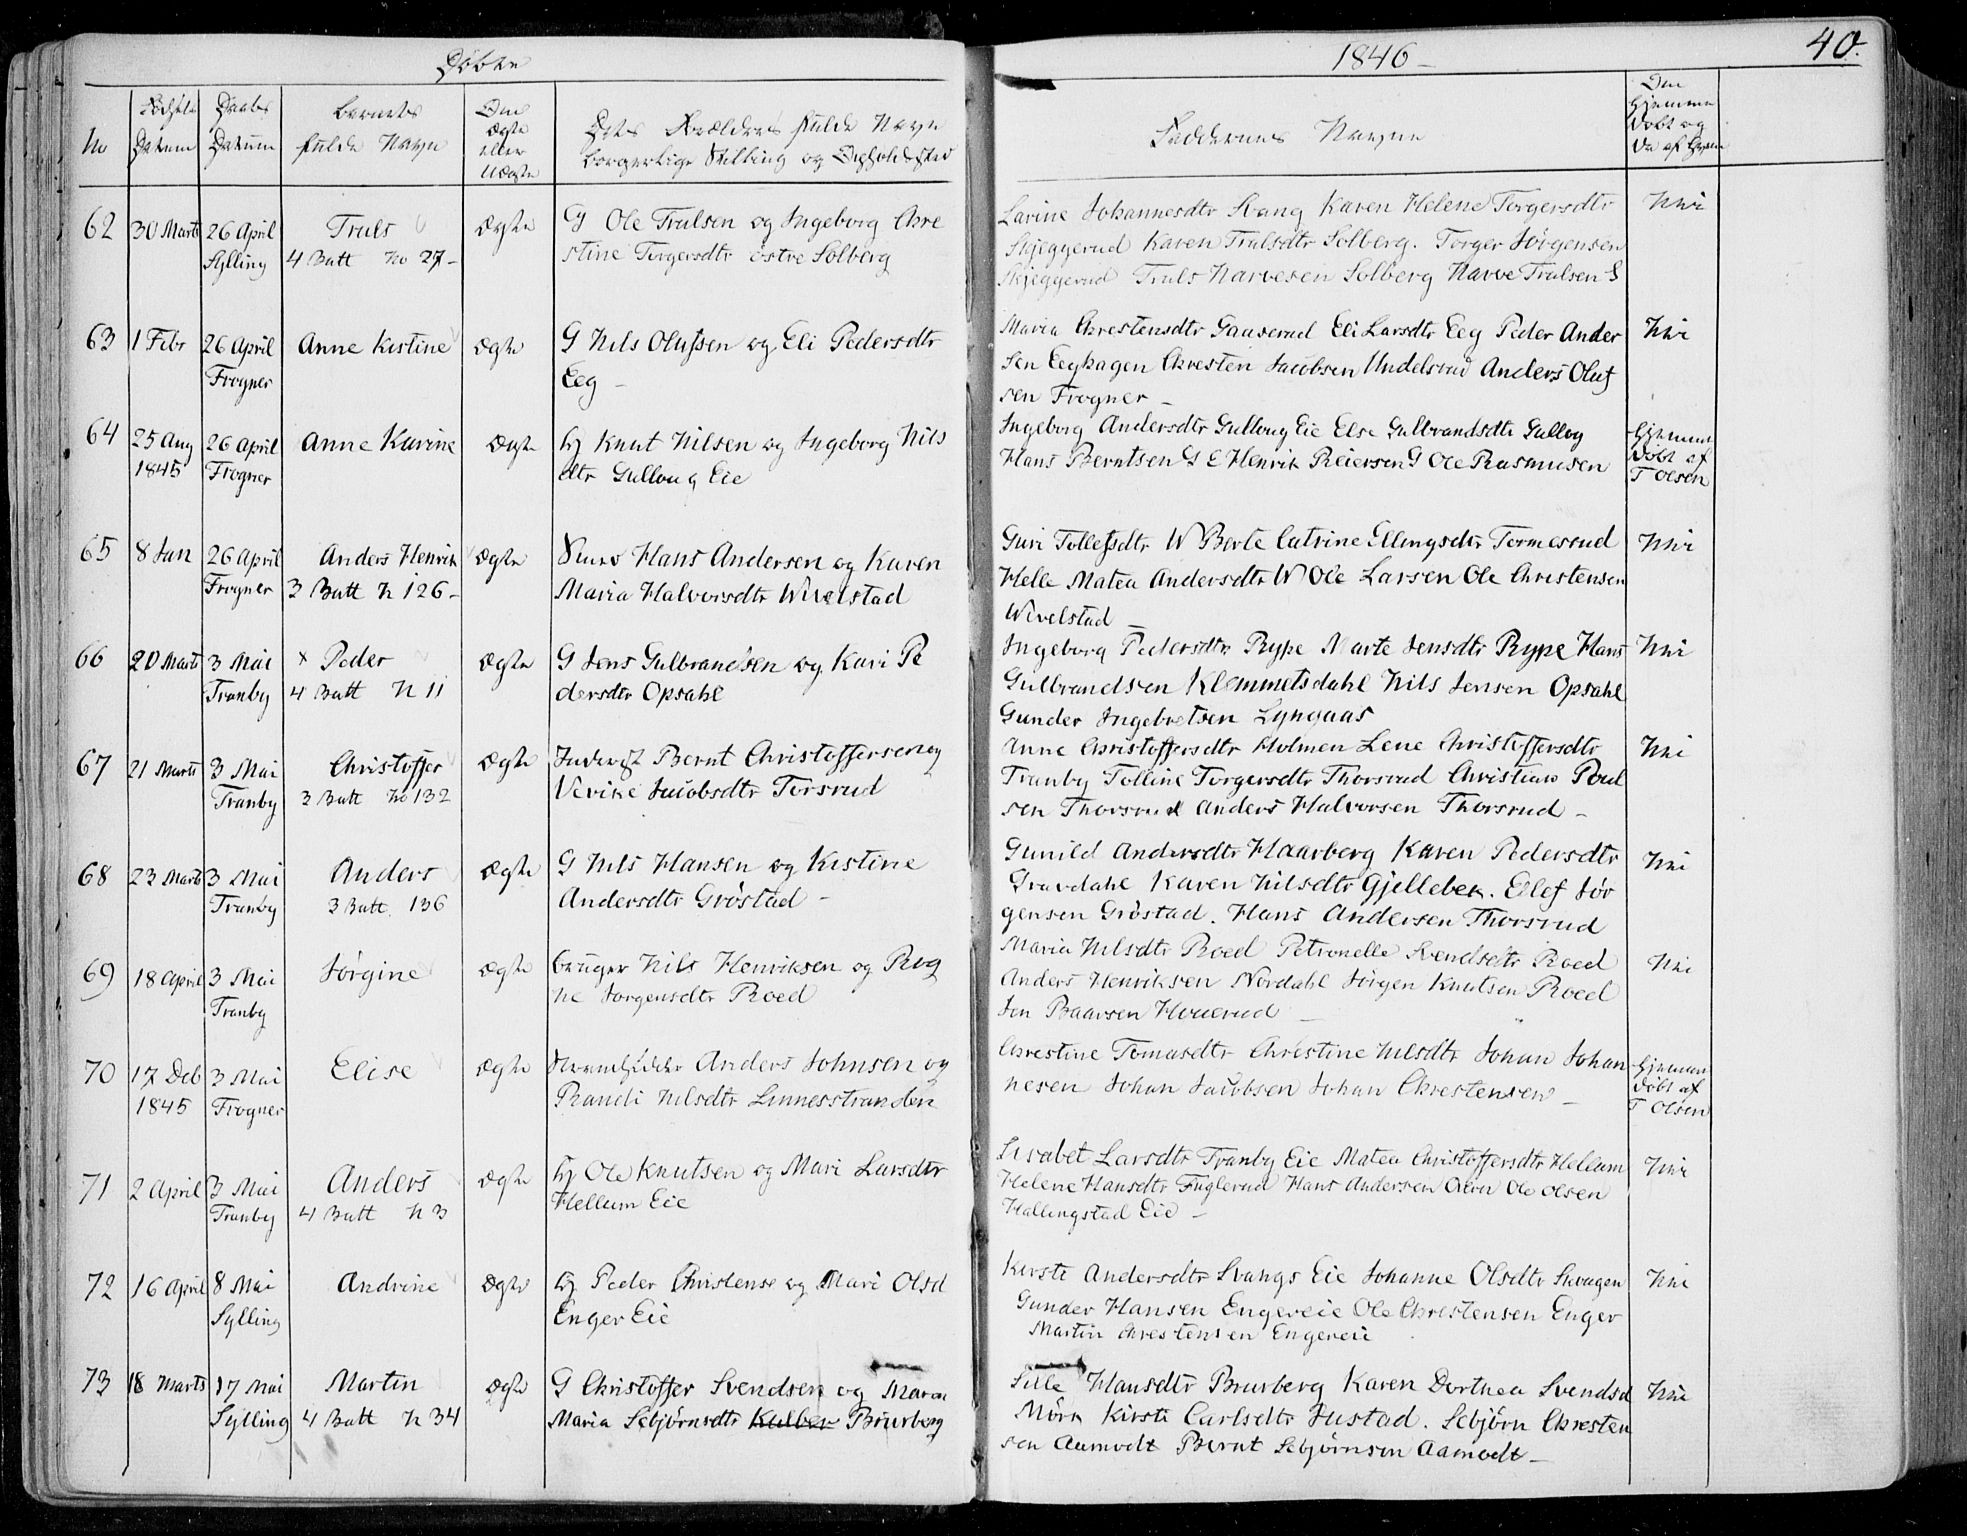 Døbte
1846
40.
No
Fødsels Datum
Daabs Datum
Barnets fulde Navn
Om ægte eller Uægte
Dets Forældres fulde Navn borgerlige Stilling og Opholdssted
Faddernes Navne
Om hjemmedøbt og
62 30 Marts 26 April Truls ægte G Ole Trulsen og Ingeborg Chre Larine Johannesdtr Svang Karen Helene Torgersdtr Nei
Sylling 4 Batt No 27 stine Torgersdtr østre Solberg Skjeggerud Karen Trulsdtr Solberg. Torger Jørgensen
Skjeggerud Truls Narvesen Solberg Narve Trulsen S
63 1 Febr 26 April Anne Kistine ægte G Nils Olufsen og Eli Pedersdtr Maria Chrestensdtr Gaaserud Eli Larsdtr Eeg Peder Ander Nei
Frogner Eeg sen Eeghagen Chresten Jacobsen Undelsrud Anders Oluf
sen Frogner
64 25 Aug 26 April Anne Karine Ægte Hj Knut Nilsen og Ingeborg Nils Ingeborg Andersdtr Gulloug Eie Else Gulbrandsdtr Gullog Hjemme
1845 Frogner dtr Gulloug Eie Hans Berntsen G E Henrik Reiersen G Ole Rasmusen døbt af
T Olsen
65 8 Jan 26 April Anders Henrik Ægte Hans Andersen og Karen Guri Tollefsdtr W Berte Catrine Ellingsdtr Tormesrud Nei
Frogner 3 Batt N 126 Maria Halvorsdtr Wivelstad Helle Matea Andersdtr W Ole Larsen Ole Christensen
Wivelstad
66 20 Marts 3 Mai x Peder Ægte G Jens Gulbrandsen og Kari Pe Ingeborg Pedersdtr Rype Marte Jensdtr Rype Hans Nei
Tranby 4 Batt N 11 dersdtr Opsahl Gulbrandsen Klemmetsdahl Nils Jensen Opsahl
Gunder Ingebretsen Lyngaas
67 21 Marts 3 Mai Christoffer Ægte Inderst Bernt Christoffersen og Anne Christoffersdtr Holmen Lene Christoffersdtr Nei
Tranby 3 Batt No 132 Verike Jacobsdtr Torsrud Tranby Tolline Torgersdtr Thorsrud Christian Poul
sen Thorsrud Anders Halvorsen Thorsrud
68 23 Marts 3 Mai Anders Ægte G Nils Hansen og Kistine Gunild Andersdtr Haarberg Karen Pedersdtr Nei
Tranby 3 Batt. 136 Andersdtr Gröstad Gravdahl Karen Nilsdtr Gjellebek. Ellef Jør
gensen Gröstad. Hans Andersen Thorsrud
69 18 April 3 Mai Jørgine Ægte bruger Nils Henriksen og Rog Maria Nilsdtr Roed Petronelle Svendsdtr Roed Nei
Tranby ne Jorgensdtr Roed Anders Henriksen Nordahl Jørgen Knutsen Roed
Jon Paavsen Houerud
70 17 Deb 3 Mai Elise Ægte Anders Johnsen og Chrestine Tomasdtr Christine Nilsdtr Johan Johan Hjemme
1845 Frogner Randi Nilsdtr Linnesstranden nesen Johan Jacobsen Johan Chrestensen døbt af
T Olsen
71 2 April 3 Mai Anders Ægte Hj Ole Knutsen og Mari Larsdtr Lisabet Larsdtr Tranby Eie Matea Christoffersdtr Hellum Nei
Tranby 4 Batt N 3 Hellum Eie Helene Hansdtr Fuglerud Hans Andersen Ole Olsen
Hallingstad Eie
72 16 April 8 Mai Andrine Ægte Hj Peder Christense og Mari Olsd Kirsti Andersdtr Svangs Eie Johanne Olsdtr Skougen Nei
Sylling Enger Eie Gunder Hansen Engereie Ole Chrestensen Enger
Martin Chrestensen Engereie
73 18 Marts 17 Mai Martin Ægte G Christoffer Svendsen og Maren Sille Hansdtr Brurberg Karen Dorthea Svendsd Nei
Sylling 4 Batt N 34 Maria Sebjørnsdtr Kulber Brurberg Mörk Kirsti Carlsdtr Justad. Sebjörn Chresten
sen Aamodt Bernt Sebjørnsen Aamodt